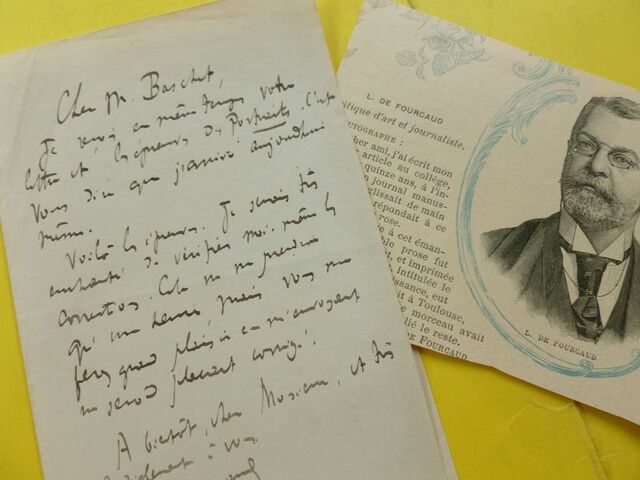 Cher M. Baschet,
Je reçois en même temps votre
lettre et les épreuves des Portraits. C'est
vous dire que j'arrive aujourd'hui
même.
Voilà les épreuves. Je serais très
enchanté de vérifier moi-même les
corrections. Cela ne me prendra
qu'une heure mais vous me
ferez grand plaisir en m'envoyant
un second placard corrigé.
A bientôt, cher Monsieur, et très
à vous
L. DE FOURCAUD
itique d'art et journaliste.
UTOGRAPHE :
her ami, j'ai écrit mon
article au collège,
quinze ans, à l'in-
n journal manus-
glissait de main
répondait à ce
rose.
e à cet éman-
ble prose fut
t, et imprimée
intitulée le
issance, eut
it à Toulouse,
e morceau avait
lié le reste.
DE FOURCAUD.
L. DE FOURCAUD